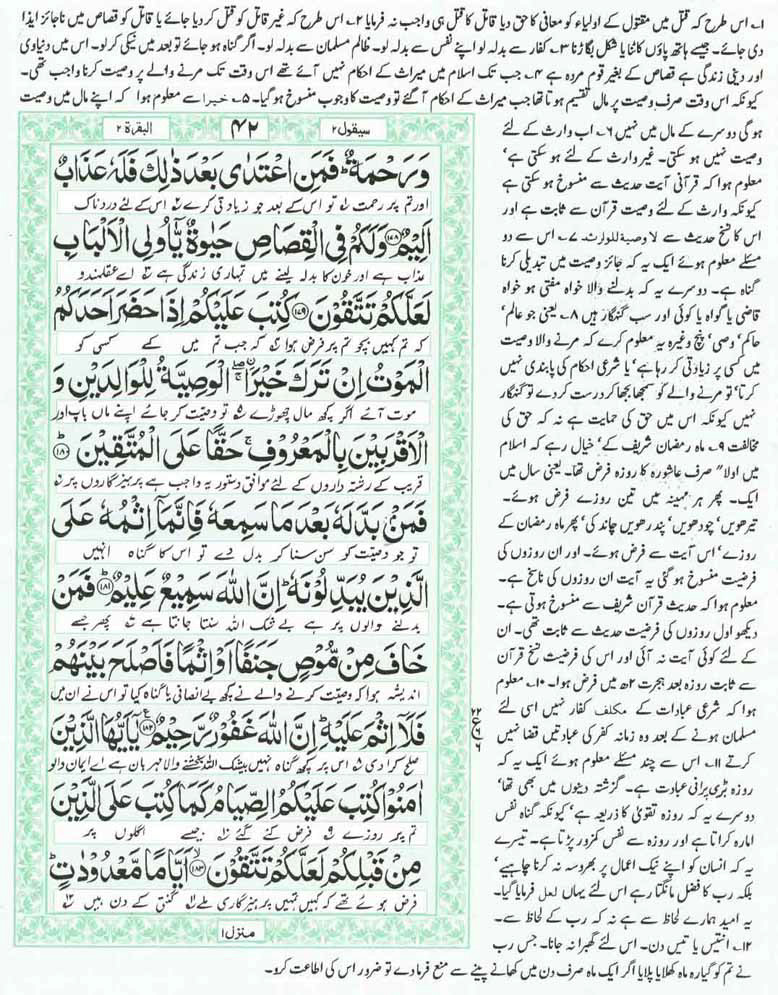 ۱؎ اس طرح کہ قتل میں مقتول کے اولیاء کو معافی کا حق دیا قاتل کا قتل ہی واجب نہ فرمایا ۲؎ اس طرح کہ غیر قاتل کو قتل کر دیا جائے یا قاتل کو قصاص میں ناجائز ایذا
دی جائے۔ جیسے ہاتھ پاؤں کاٹنا یا شکل بگاڑنا ۳؎ کفار سے بدلہ لو اپنے نفس سے بدلہ لو۔ ظالم مسلمان سے بدلہ لو۔ اگر گناہ ہو جائے تو بعد میں نیکی کر لو۔ اس میں دنیاوی
اور دینی زندگی ہے قصاص کے بغیر قوم مردہ ہے ۴؎ جب تک اسلام میں میراث کے احکام نہیں آئے تھے اس وقت تک مرنے والے پر وصیت کرنا واجب تھی۔
کیونکہ اس وقت صرف وصیت پر مال تقسیم ہوتا تھا جب میراث کے احکام آ گئے تو وصیت کا وجوب منسوخ ہو گیا۔ ۵؎ خیرا سے معلوم ہوا کہ اپنے مال میں وصیت
ہو گی دوسرے کے مال میں نہیں ۶؎ اب وارث کے لئے
وصیت نہیں ہو سکتی۔ غیر وارث کے لئے ہو سکتی ہے'
معلوم ہوا کہ قرآنی آیت حدیث سے منسوخ ہو سکتی ہے
کیونکہ وارث کے لئے وصیت قرآن سے ثابت ہے اور
اس کا نسخ حدیث سے لا وصیۃ للوارث ۷؎ اس سے دو
مسئلے معلوم ہوئے ایک یہ کہ جائز وصیت میں تبدیلی کرنا
گناہ ہے۔ دوسرے یہ کہ بدلنے والا خواہ مفتی ہو خواہ
قاضی یا گواہ یا کوئی اور سب گنہگار ہیں ۸؎ یعنی جو عالم'
حاکم' وصی' پنچ وغیرہ یہ معلوم کرے کہ مرنے والا وصیت
میں کسی پر زیادتی کر رہا ہے' یا شرعی احکام کی پابندی نہیں
کرتا' تو مرنے والے کو سمجھا بجھا کر درست کر دے تو گنہگار
نہیں کیونکہ اس میں حق کی حمایت ہے نہ کہ حق کی
مخالفت ۹؎ ماہ رمضان شریف کے' خیال رہے کہ اسلام
میں اولا" صرف عاشورہ کا روزہ فرض تھا۔ یعنی سال میں
ایک۔ پھر ہر مہینہ میں تین روزے فرض ہوئے۔
تیرھویں' چودھویں' پندرھویں چاند کی' پھر ماہ رمضان کے
روزے' اس آیت سے فرض ہوئے۔ اور ان روزوں کی
فرضیت منسوخ ہو گئی یہ آیت ان روزوں کی ناسخ ہے۔
معلوم ہوا کہ حدیث قرآن شریف سے منسوخ ہوتی ہے۔
دیکھو اول روزوں کی فرضیت حدیث سے ثابت تھی۔ ان
کے لئے کوئی آیت نہ آئی اور اس کی فرضیت نسخ قرآن
سے ثابت روزہ بعد ہجرت ۲ھ میں فرض ہوا۔ ۱۰؎ معلوم
ہوا کہ شرعی عبادات کے مکلف کفار نہیں اسی لئے
مسلمان ہونے کے بعد وہ زمانہ کفر کی عبادتیں قضا نہیں
کرتے ۱۱؎ اس سے چند مسئلے معلوم ہوئے ایک یہ کہ
روزہ بڑی پرانی عبادت ہے۔ گزشتہ دینوں میں بھی تھا'
دوسرے یہ کہ روزہ تقویٰ کا ذریعہ ہے' کیونکہ گناہ نفس
امارہ کراتا ہے اور روزہ سے نفس کمزور پڑتا ہے۔ تیسرے
یہ کہ انسان کو اپنے نیک اعمال پر بھروسہ نہ کرنا چاہیے'
بلکہ رب کا فضل مانگتا رہے اس لئے یہاں لعل فرمایا گیا۔
یہ امید ہمارے لحاظ سے ہے نہ کہ رب کے لحاظ سے۔
۱۲؎ انتیس یا تیس دن۔ اس لئے گھبرا نہ جانا۔ جس رب
نے تم کو گیارہ ماہ کھلایا پلایا اگر ایک ماہ صرف دن میں کھانے پینے سے منع فرما دے تو ضرور اس کی اطاعت کرو۔
سیقول ۲
۴۲
البقرۃ ۲
وَرَحْمَةٌ ؕ فَمَنِ اعْتَدٰی بَعْدَ ذٰلِكَ فَلَهٗ عَذَابٌ
اور تم پر رحمت تو اس کے بعد جو زیادتی کرے اس کے لئے دردناک
اَلِیْمٌ ﴿۱۷۸﴾ وَلَكُمْ فِی الْقِصَاصِ حَیٰوةٌ یّٰۤاُولِی الْاَلْبَابِ
عذاب ہے اور خون کا بدلہ لینے میں تمہاری زندگی ہے اے عقلمندو
لَعَلَّكُمْ تَتَّقُوْنَ ﴿۱۷۹﴾ كُتِبَ عَلَیْكُمْ اِذَا حَضَرَ اَحَدَكُمُ
کہ تم کہیں بچو تم پر فرض ہوا کہ جب تم میں کسی کو
الْمَوْتُ اِنْ تَرَكَ خَیْرَا ۖۚ اۨلْوَصِیَّةُ لِلْوَالِدَیْنِ وَ
موت آئے اگر کچھ مال چھوڑے تو وصیت کر جائے اپنے ماں باپ اور
الْاَقْرَبِیْنَ بِالْمَعْرُوْفِ ۚ حَقًّا عَلَی الْمُتَّقِیْنَ ﴿۱۸۰﴾ ؕ
قریب کے رشتہ داروں کے لئے موافق دستور یہ واجب ہے پرہیزگاروں پر
فَمَنْۢ بَدَّلَهٗ بَعْدَ مَا سَمِعَهٗ فَاِنَّمَاۤ اِثْمُهٗ عَلَی
تو جو وصیت کو سن سنا کر بدل دے تو اس کا گناہ انہیں
الَّذِیْنَ یُبَدِّلُوْنَهٗ ؕ اِنَّ اللّٰهَ سَمِیْعٌ عَلِیْمٌ ﴿۱۸۱﴾ ؕ فَمَنْ
بدلنے والوں پر ہے بے شک اللہ سنتا جانتا ہے پھر جسے
خَافَ مِنْ مُّوْصٍ جَنَفًا اَوْ اِثْمًا فَاَصْلَحَ بَیْنَهُمْ
اندیشہ ہوا کہ وصیت کرنے والے نے کچھ بے انصافی یا گناہ کیا تو اس نے ان میں
فَلَاۤ اِثْمَ عَلَیْهِ ؕ اِنَّ اللّٰهَ غَفُوْرٌ رَّحِیْمٌ ﴿۱۸۲﴾ یٰۤاَیُّهَا الَّذِیْنَ
صلح کرا دی اس پر کچھ گناہ نہیں بیشک اللہ بخشنے والا مہربان ہے اے ایمان والو
اٰمَنُوْا كُتِبَ عَلَیْكُمُ الصِّیَامُ كَمَا كُتِبَ عَلَی الَّذِیْنَ
تم پر روزے فرض کئے گئے جیسے اگلوں پر
مِنْ قَبْلِكُمْ لَعَلَّكُمْ تَتَّقُوْنَ ﴿۱۸۳﴾ اَیَّامًا مَّعْدُوْدٰتٍ ؕ
فرض ہوئے تھے کہ کہیں تمہیں پرہیزگاری ملے گنتی کے دن ہیں
منزل ۱